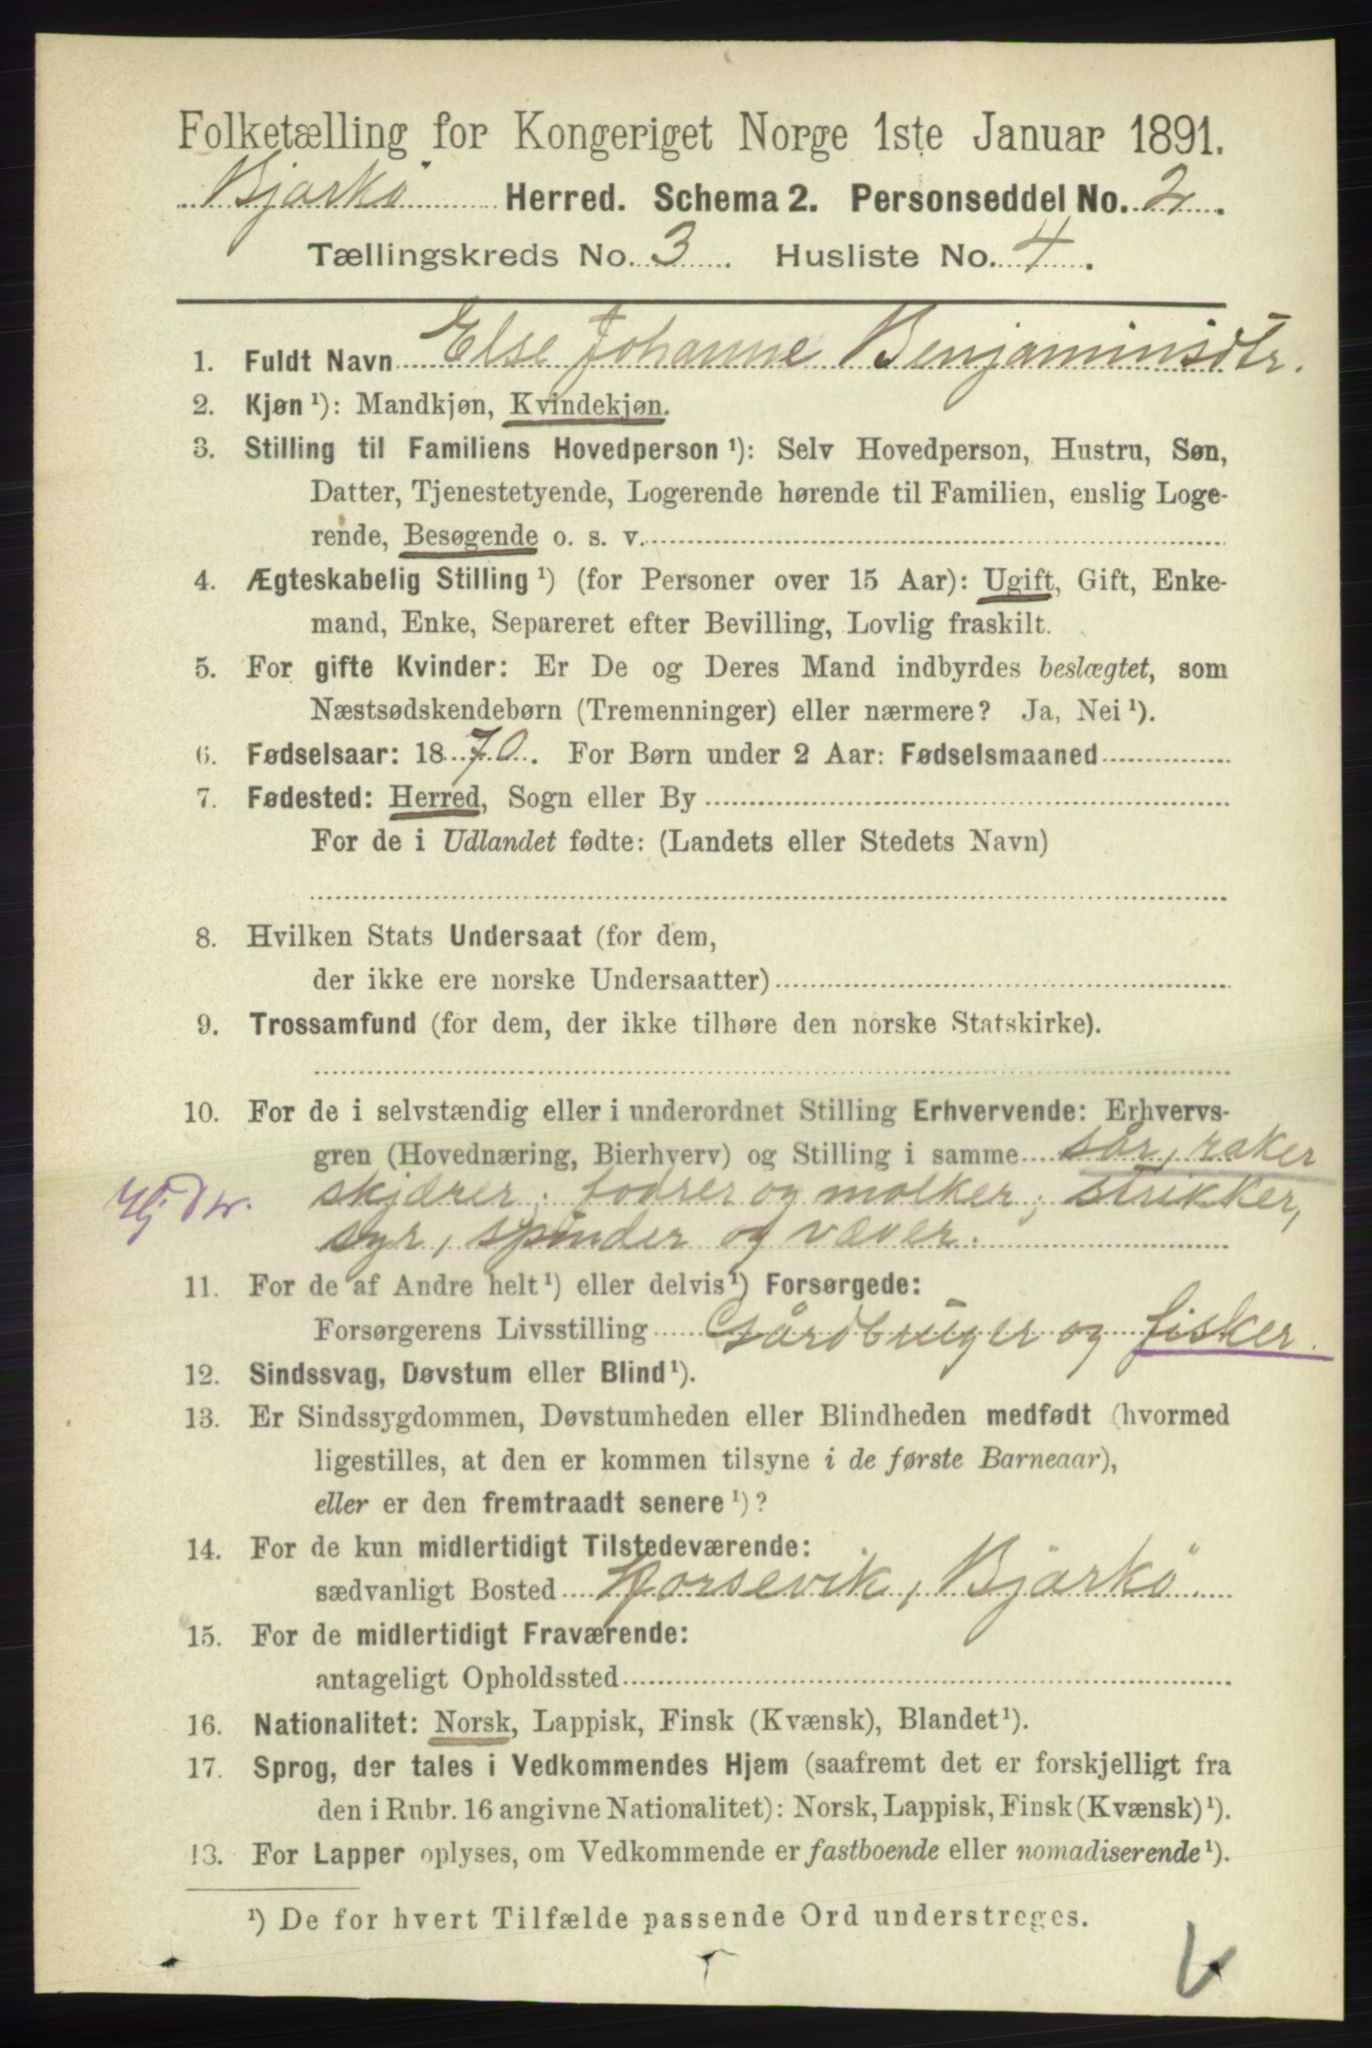 Folketælling for Kongeriget Norge 1ste Januar 1891.
Bjarkö Herred. Schema 2. Personseddel No. 2.
Tællingskreds No. 3. Husliste No. 4.
1. Fuldt Navn Else Johanne Benjaminsdtr.
2. Kjøn ¹): Mandkjøn, Kvindekjøn.
3. Stilling til Familiens Hovedperson ¹): Selv Hovedperson, Hustru, Søn,
Datter, Tjenestetyende, Logerende hørende til Familien, enslig Loge-
rende, Besøgende o. s. v.
4. Ægteskabelig Stilling ¹) (for Personer over 15 Aar): Ugift, Gift, Enke-
mand, Enke, Separeret efter Bevilling, Lovlig fraskilt.
5. For gifte Kvinder: Er De og Deres Mand indbyrdes beslægtet, som
Næstsødskendebørn (Tremenninger) eller nærmere? Ja, Nei ¹).
6. Fødselsaar: 1870. For Børn under 2 Aar: Fødselsmaaned
7. Fødested: Herred, Sogn eller By
For de i Udlandet fødte: (Landets eller Stedets Navn)
8. Hvilken Stats Undersaat (for dem,
der ikke ere norske Undersaatter)
9. Trossamfund (for dem, der ikke tilhøre den norske Statskirke).
10. For de i selvstændig eller i underordnet Stilling Erhvervende: Erhvervs-
gren (Hovednæring, Bierhverv) og Stilling i samme sår, raker
skjærer; fodrer og molker; strikker,
syr, spinder og væver.
11. For de af Andre helt ¹) eller delvis ¹) Forsørgede:
Forsørgerens Livsstilling Gårdbruger og fisker.
12. Sindssvag, Døvstum eller Blind ¹).
13. Er Sindssygdommen, Døvstumheden eller Blindheden medfødt (hvormed
ligestilles, at den er kommen tilsyne i de første Barneaar),
eller er den fremtraadt senere ¹)?
14. For de kun midlertidigt Tilstedeværende:
sædvanligt Bosted Horsevik, Bjarkö.
15. For de midlertidigt Fraværende:
antageligt Opholdssted
16. Nationalitet: Norsk, Lappisk, Finsk (Kvænsk), Blandet ¹).
17. Sprog, der tales i Vedkommendes Hjem (saafremt det er forskjelligt fra
den i Rubr. 16 angivne Nationalitet): Norsk, Lappisk, Finsk (Kvænsk) ¹).
13. For Lapper oplyses, om Vedkommende er fastboende eller nomadiserende ¹).
¹) De for hvert Tilfælde passende Ord understreges.